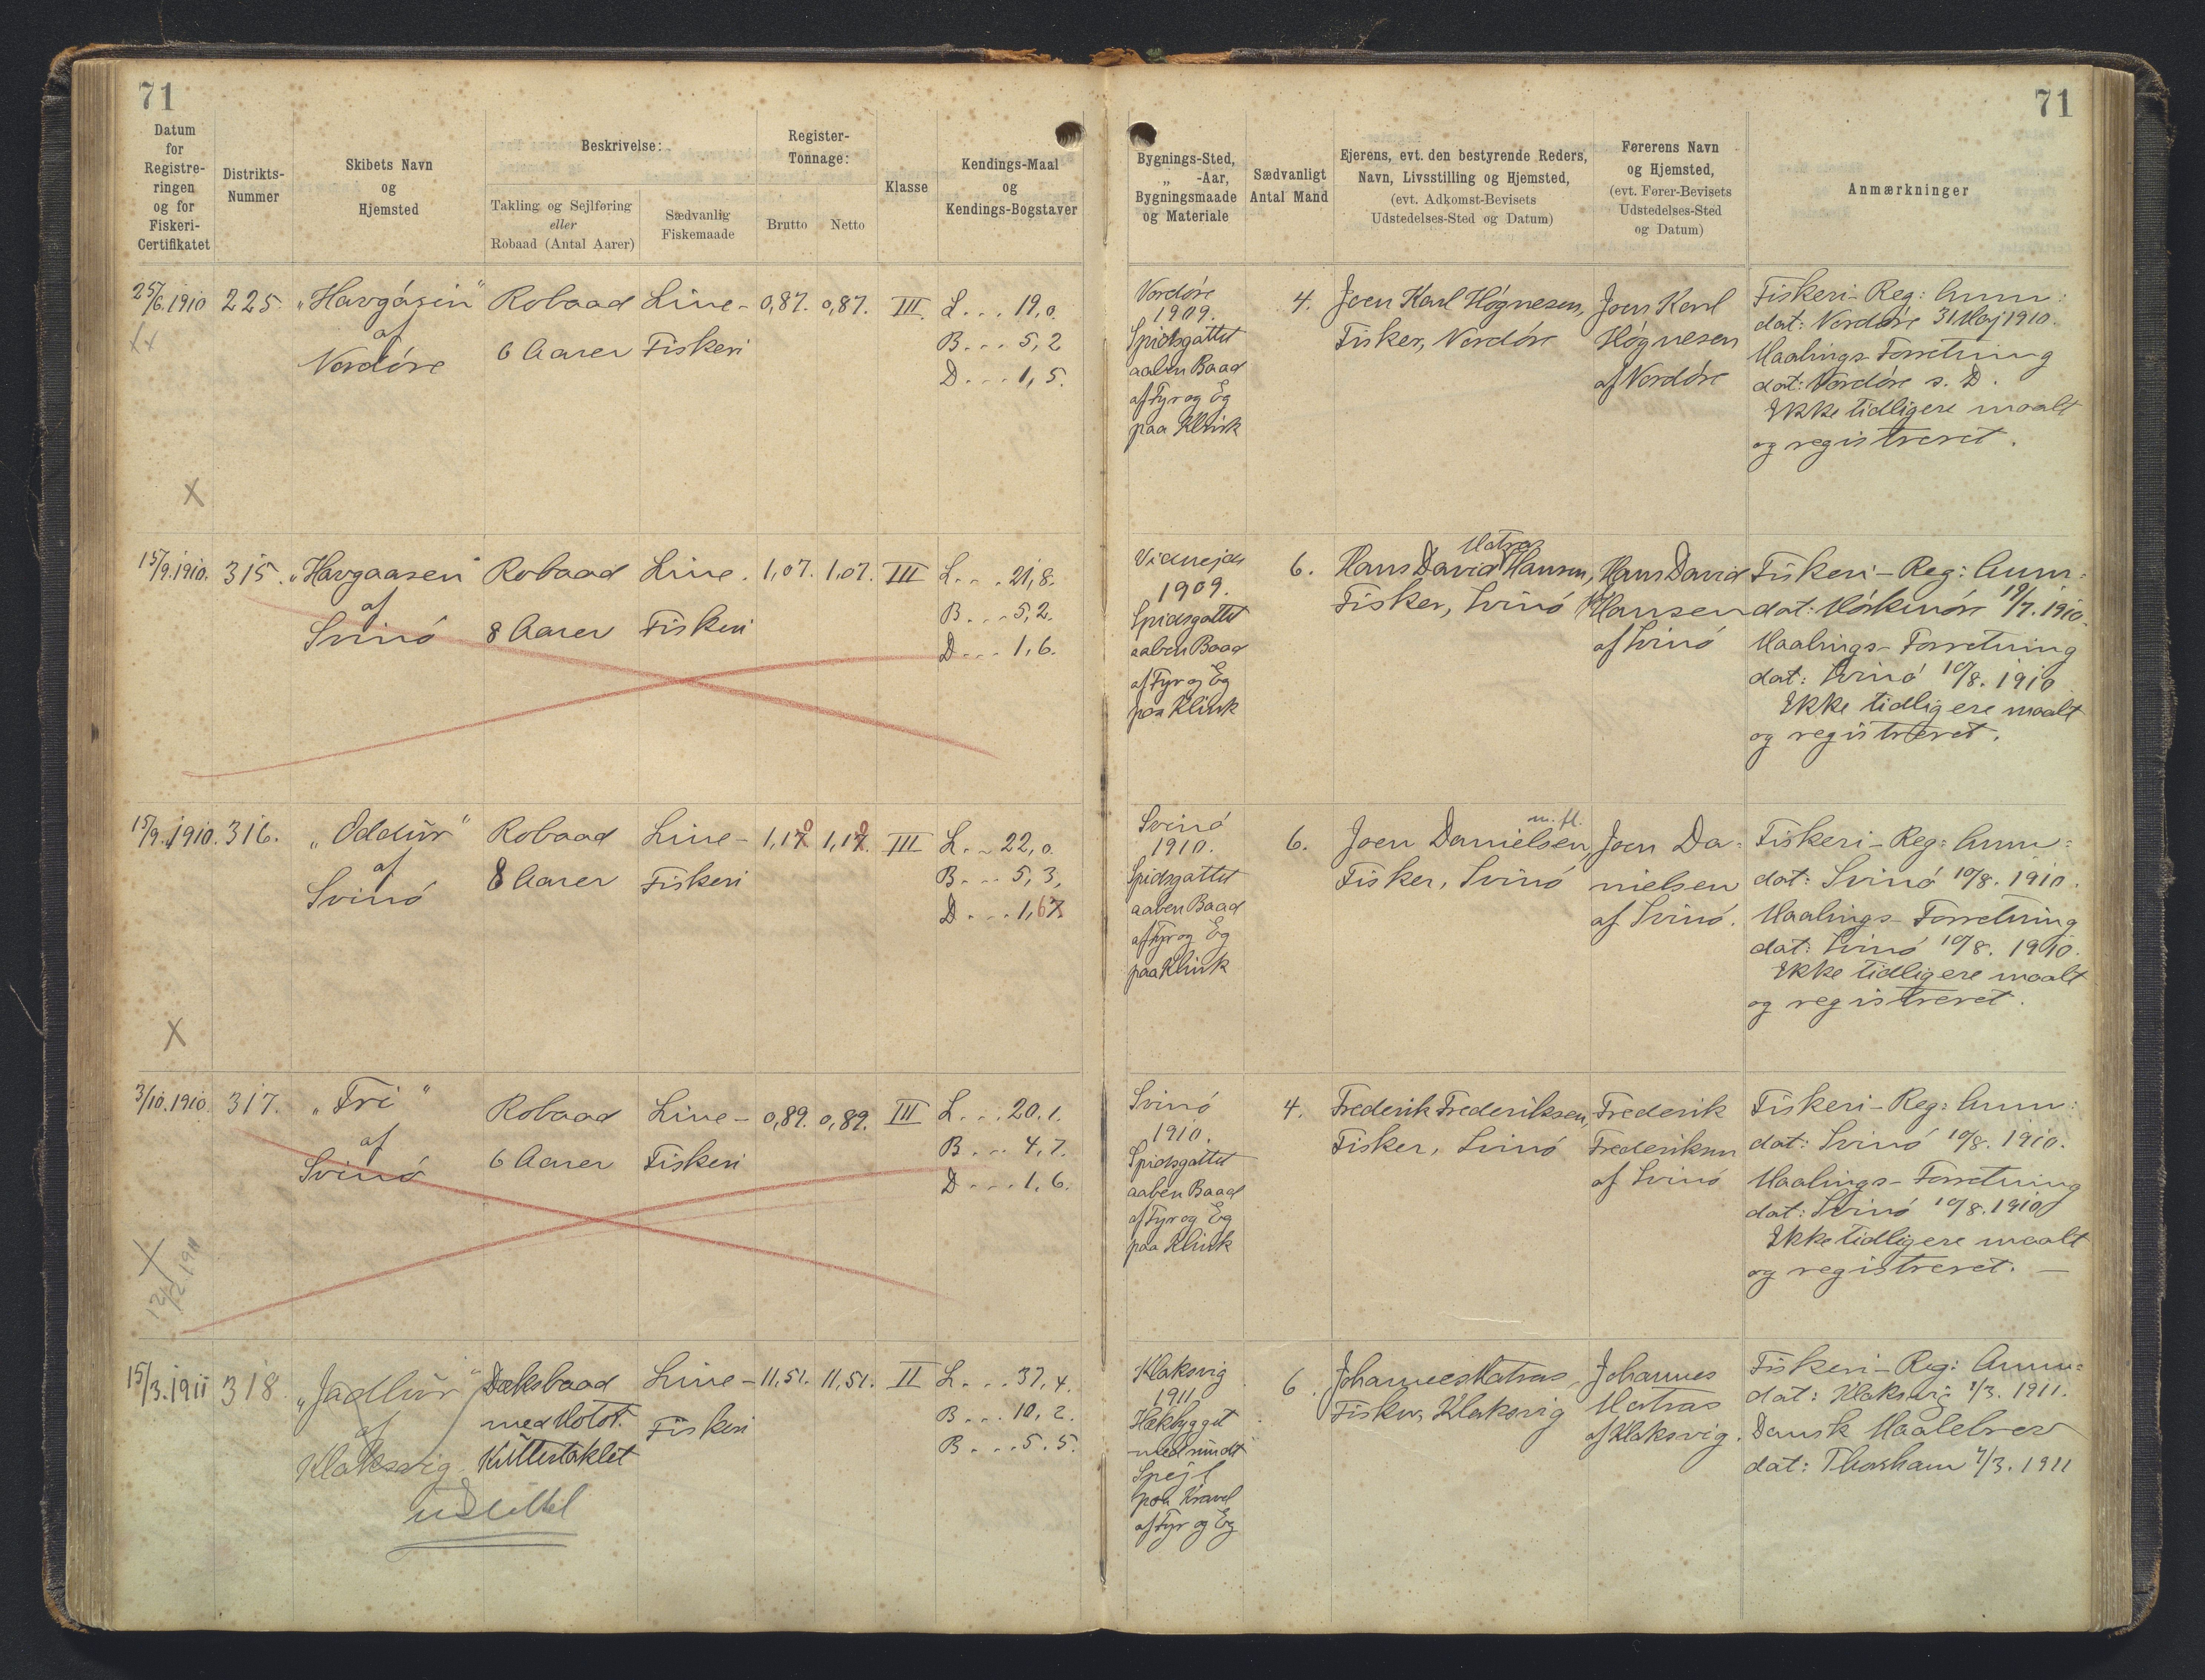 71
71
Datum
for
Registre-
ringen
og for
Fiskeri-
Certifikatet
Distrikts-
Nummer
Skibets Navn
og
Hjemsted
Beskrivelse:
Takling og Sejlføring
eller
Robaad (Antal Aarer)
Sædvanlig
Fiskemaade
Register-
Tonnage:
Brutto
Netto
Klasse
Kendings-Maal
og
Kendings-Bogstaver
Bygnings-Sted,
„ -Aar,
Bygningsmaade
og Materiale
Sædvanligt
Antal Mand
Ejerens, evt. den bestyrende Reders,
Navn, Livsstilling og Hjemsted,
(evt. Adkomst-Bevisets
Udstedelses-Sted og Datum)
Førerens Navn
og Hjemsted,
(evt. Fører-Bevisets
Udstedelses-Sted
og Datum)
Anmærkninger
25/6.1910
225.
„Havgásin"
af
Nordöre
Robaad
6 Aarer
Line-
Fiskeri
0,87.
0,87.
III
L... 19,0.
B... 5,2
D... 1,5.
X
Nordöre
1909.
Spidsgattet
aaben Baad
af Fyr og Eg
paa Klink
4.
Joen Karl Högnesen,
Fisker, Nordöre
Joen Karl
Högnesen
af Nordöre
Fiskeri-Reg: Anm:
dat: Nordöre 31 Maj 1910.
Maalings-Forretning
dat: Nordöre s. D.
Ikke tidligere maalt
og registreret.
15/9.1910.
315.
„Havgaasen"
af
Svinö
Robaad
8 Aarer
Line.
Fiskeri
1,07.
1,07.
III
L... 21,8.
B... 5,2.
D... 1,6.
1909.
Spidsgattet
aaben Baad
af Fyr og Eg
paa Klink
6.
Matras
Hans David Hansen,
Fisker, Svinö
Hans David
Hansen
af Svinö
Fiskeri-Reg: Anm:
dat: 19/7.1910.
Maalings-Forretning
dat: Svinö 10/8.1910
Ikke tidligere maalt
og registreret.
15/9.1910.
316.
„Oddur"
af
Svinö
Robaad
8 Aarer
Line-
Fiskeri
1,10
1,10
III
L... 22,0.
B... 5,3,
D... 1,6
X
Svinö
1910.
Spidsgattet
aaben Baad
af Fyr og Eg
paa Klink
6.
m. fl.
Joen Danielsen,
Fisker, Svinö
Joen Da=
nielsen
af Svinö.
Fiskeri-Reg: Anm:
dat: Svinö 10/8.1910.
Maalings-Forretning
dat: Svinö 10/8.1910.
Ikke tidligere maalt
og registreret.
3/10.1910.
317.
„Fri"
af
Svinö
Robaad
6 Aarer
Line-
Fiskeri
0,89.
0,89.
III
L... 20.1.
B... 4,7.
D... 1,6.
X
Svinö
1910.
Spidsgattet
aaben Baad
af Fyr og Eg
paa Klink
4.
Frederik Frederiksen,
Fisker, Svinö
Frederik
Frederiksen
af Svinö
Fiskeri-Reg: Anm:
dat: Svinö 10/8.1910.
Maalings-Forretning
dat: Svinö 10/8.1910
Ikke tidligere maalt
og registreret.—
15/3.1911
318.
„Jadlur"
af
Klaksvig
Dæksbaad
med Motor.
Kuttertaklet
udslettet
Line-
Fiskeri
11,51.
11,51.
II
L... 37,4.
B... 10,2.
B... 5.5.
Klaksvig
1911.
Hækbygget
med rundt
Spejl
paa Kravel
af Fyr og Eg
6.
Johannes Matras,
Fisker, Klaksvig
Johannes
Matras
af Klaksvig.
Fiskeri-Reg: Anm=
dat: Klaksvig 1/3.1911.
Dansk Maalebrev
dat: Thorshavn 7/3.1911